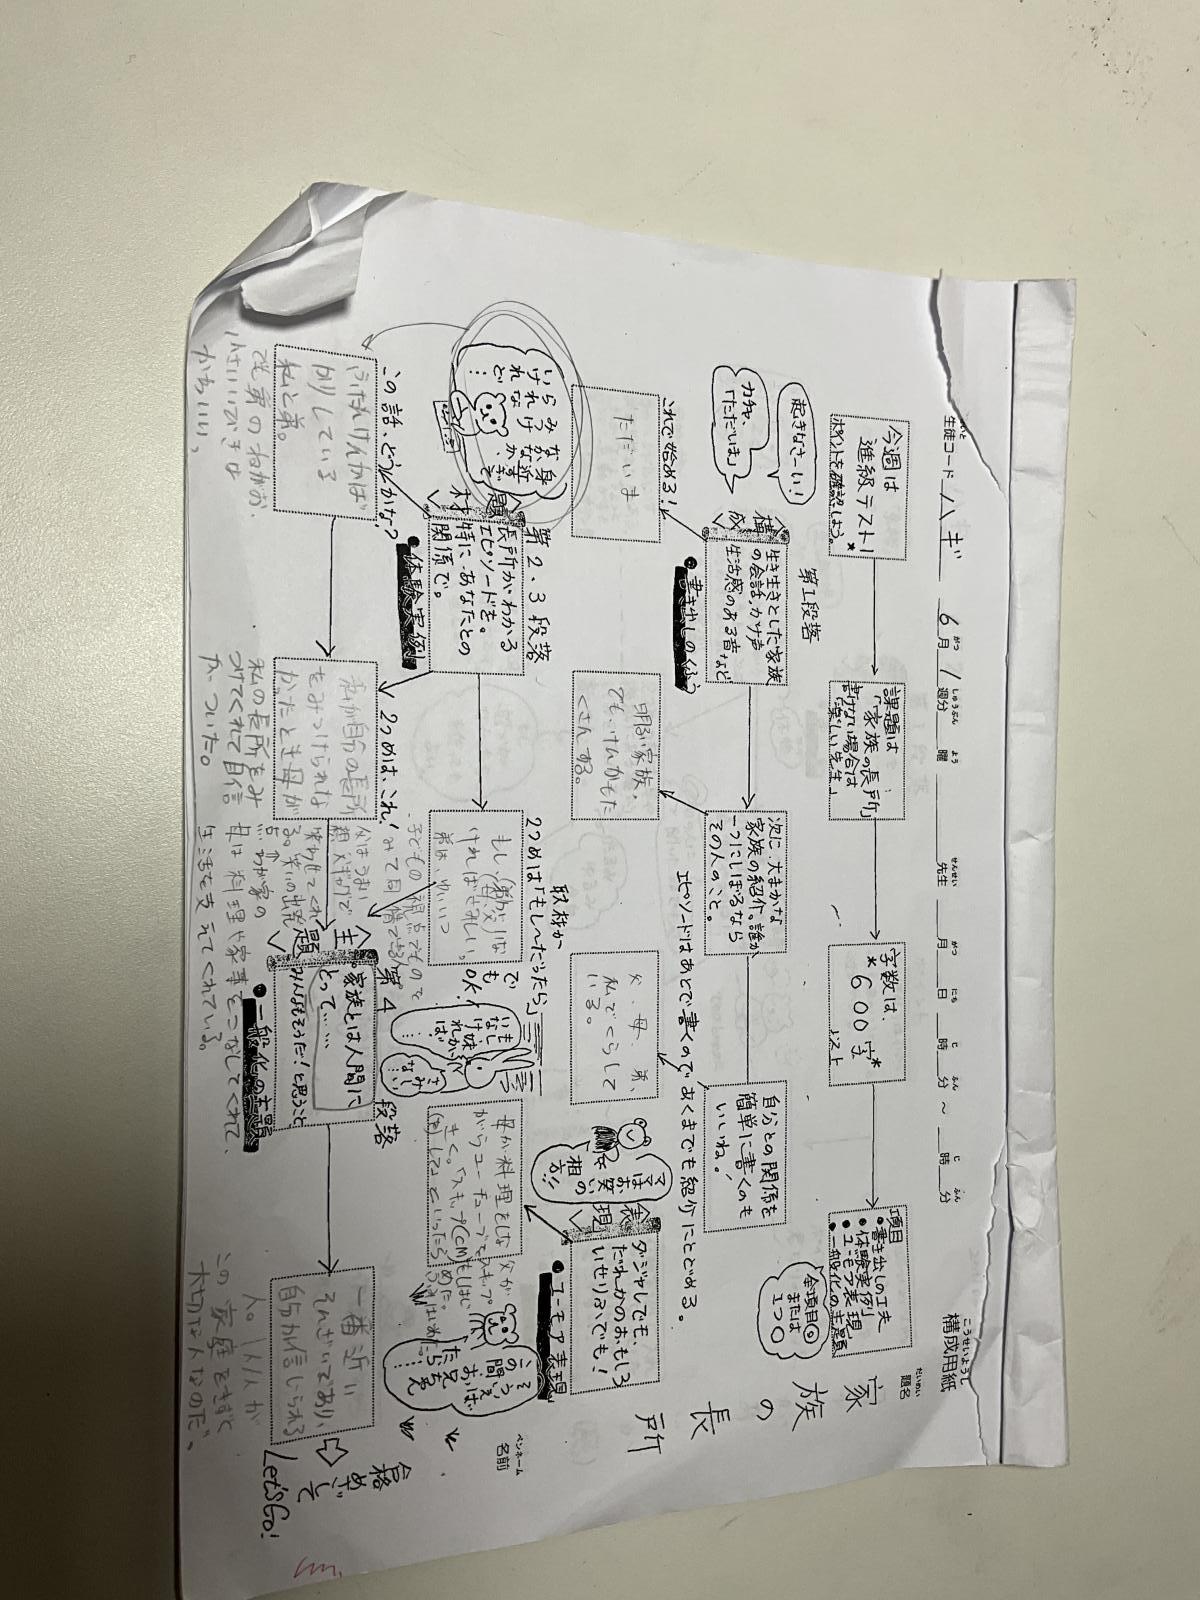 生徒コード ハギ
6月1週分 曜 先生 月 日 時 分 ~ 時 分
構成用紙
題名
家族の長所
ペンネーム
名前
今週は
進級テスト!
ポイントを確認しよう。*
課題は
「家族の長所」
書けない場合は
「楽しい先生」
字数は、
*600字*
項目
●書き出しの工夫
●体験実例
●ユーモア表現
●一般化の主題
全項目◎
または
1つ○
第1段落
構成
起きなさーい!
カチャ、
「ただいま」
これで始める!
生き生きとした家族
の会話、かけ声
生活感のある音など
●書き出しの工夫
次に、大まかな
家族の紹介。誰か
一つにしぼるなら
その人のこと。
自分との関係を
簡単に書くのも
いいね!
エピソードはあとで書くのであくまでも紹介にとどめる。
ただいま
明るい家族。
でも、けんかもた
くさんする。
父、母、弟、
私でくらして
いる。
表現
ママは
お笑い
担の
方!!
ダジャレでも、
だれかのおもしろ
いせりふでも!
●ユーモア表現
第2.3段落
題材
身近すぎ
みなかな
らうか、
いけれけ
れなど…
長所がわかる
エピソードを。
特に、あなたとの
関係で。
●体験実例
この話、どうかな?
2つめは、これ!
取材か
2つめは「もし〜だったら」
でも
OK!
もし、母(父)が
いなければさみしい。
弟は
子どもの視点でものを
みて
いもなし
け妹
れが
ば…
さみ
なし
…い
母が料理をしな
がらユーチューブで
きく。
父が
スキップ
この間、
お兄ちゃん
たら
……
ふだんけんかば
かりしている
私と弟。
でも弟のねがお
かわいい。
私が自分の長所
をみつけられな
かったとき母が
私の長所をみ
つけてくれて自信
がついた。
父はうまい
親父ギャグで
笑わせてくれ
る。笑いの出発
点。わが家の
母は料理や家事をこなしてくれて、
生活を支えてくれている。
第4段落
主題
家族とは人間に
とって……
みんなもそうだ!と思うこと
●一般化の主題
一番近い
そんざいであり、
自分が信じられる
人。
この家庭を
大切な人なのだ。
合格
めざして
Let's Go!